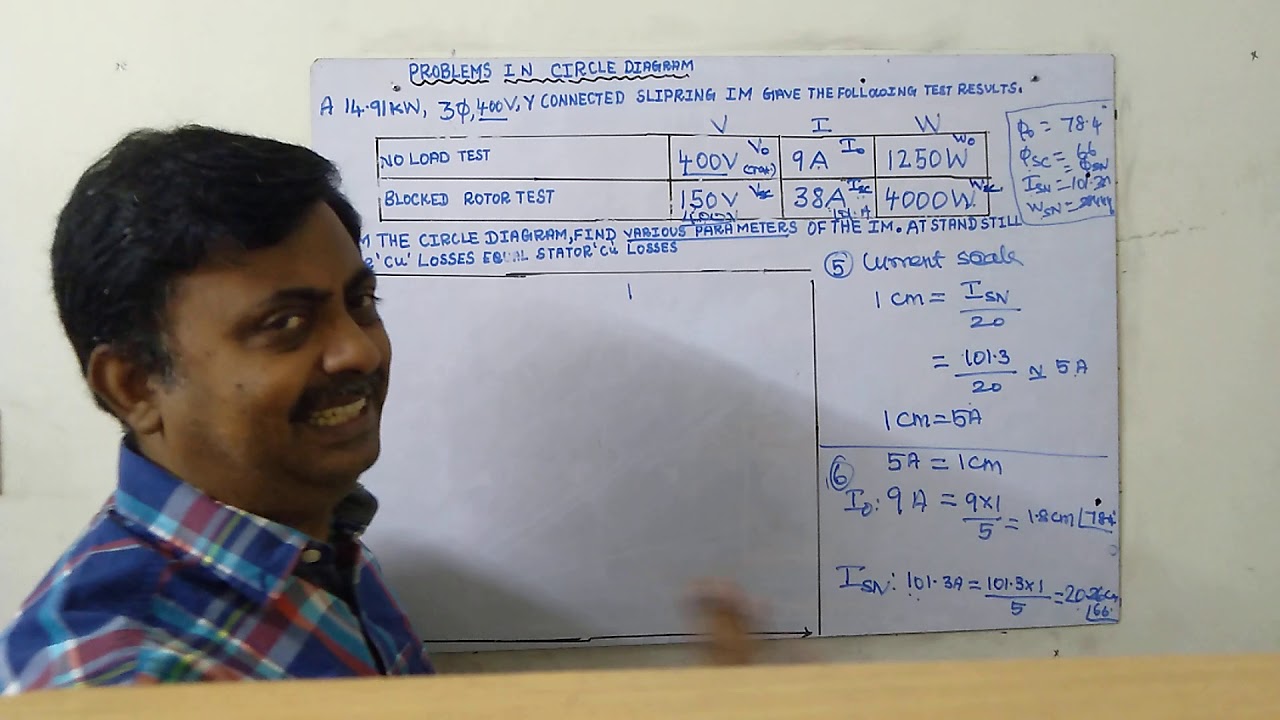 PROBLEMS IN CIRCLE DIAGRAM
A 14.91KW, 3φ, 400V, Y CONNECTED SLIPRING IM GAVE THE FOLLOWING TEST RESULTS.
V I W
NO LOAD TEST 400V V₀ 9A I₀ 1250W W₀
BLOCKED ROTOR TEST 150V Vsc 38A Isc 4000W Wsc
M THE CIRCLE DIAGRAM, FIND VARIOUS PARAMETERS OF THE IM. AT STAND STILL
'CU' LOSSES EQUAL STATOR 'CU' LOSSES
φ₀ = 78.4
φSC = 66
= φSN
ISN = 101.3A
WSN =
⑤ Current scale
1 cm = ISN
20
= 101.3 ≃ 5A
20
1 cm = 5A
⑥ 5A = 1cm
I₀: 9A = 9×1 = 1.8cm ∠78.4
5
ISN: 101.3A = 101.3×1 = 20.26cm
5
∠66